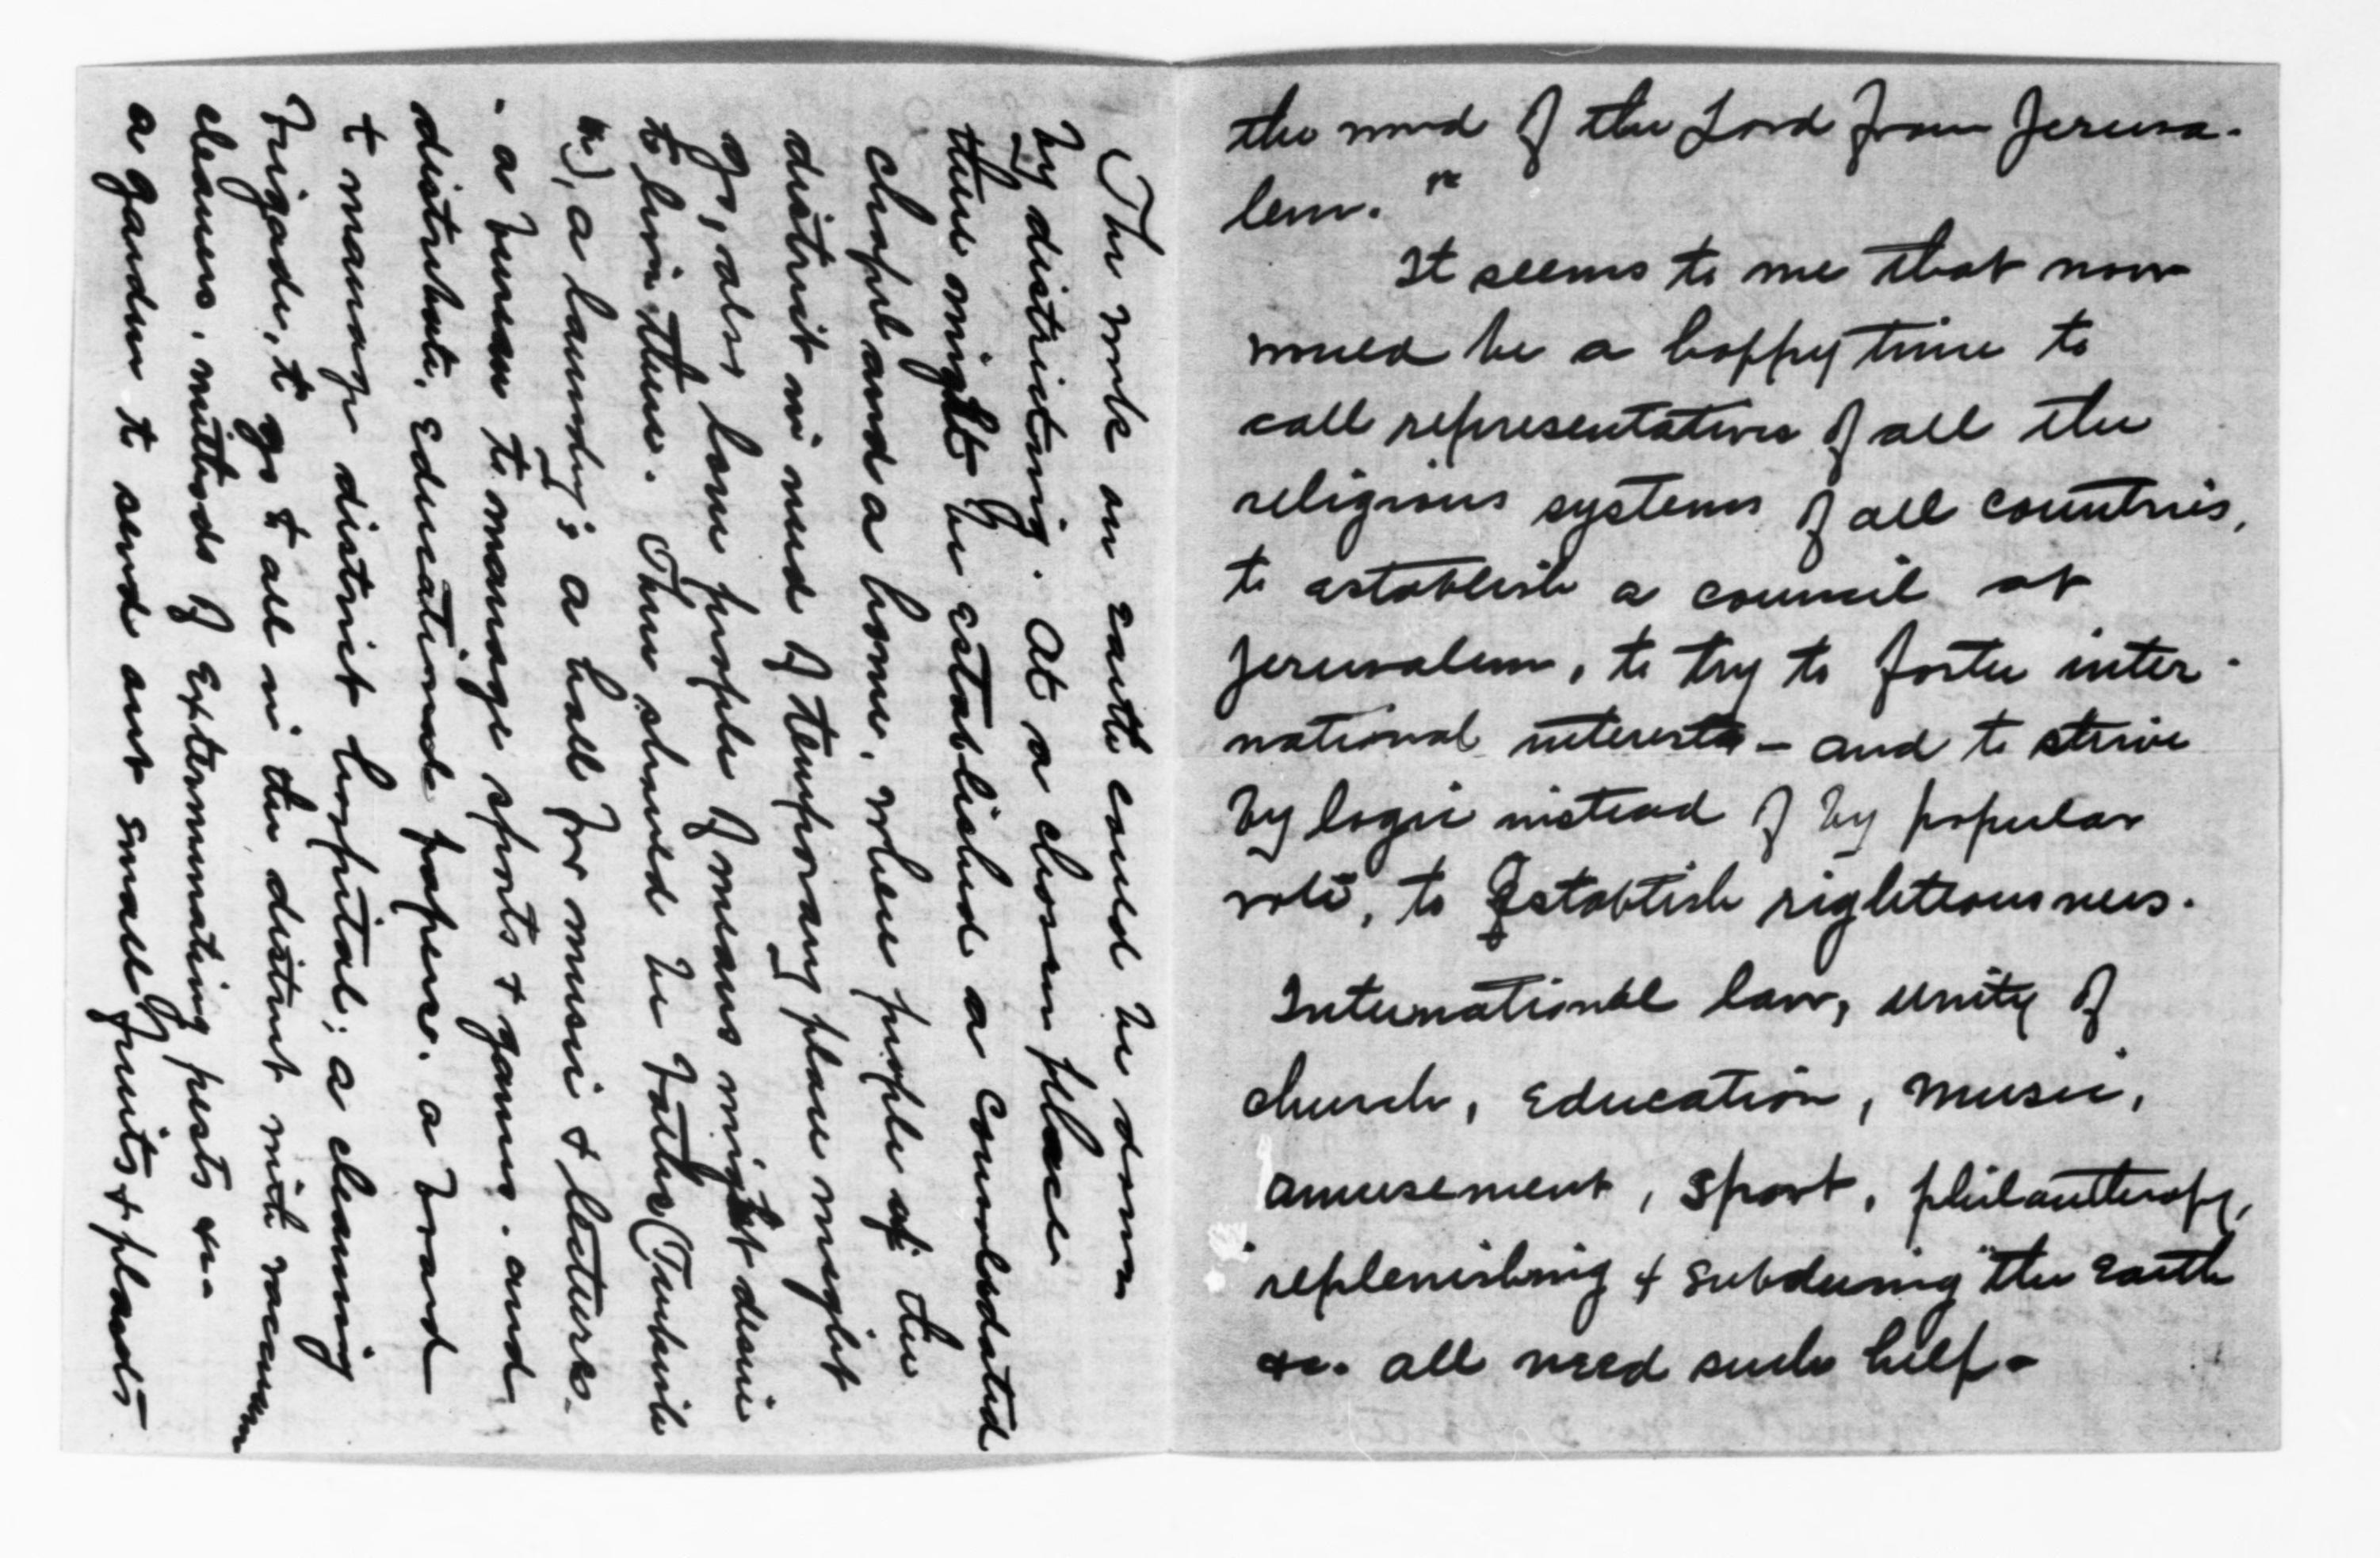 the word of the Lord from Jerusa-
lem."
It seems to me that now
would be a happy time to
call representatives of all the
religious systems of all countries,
to establish a council at
Jerusalem, to try to foster inter-
national interests - and to strive
by logic instead of by popular
vote, to Establish righteousness.
International law, unity of
church, Education, Music,
Amusement, Sport, philanthropy,
"replenishing & Subduing" the Earth
&c. all need such help -
The work on earth could be done
by districting. At a chosen place
there might be established a Consolidated
chapel and a home, where people of the
district in need of temporary place might
go, also lone people of means might desire
to live there. There should be baths (Turkish
&c), a laundry; a hall for music & lectures.
- a bureau to manage sports & games. and
distribute Educational papers. a board
to manage district hospital; a cleaning
brigade, to go to all in the district with vacuum
cleaners, methods of Exterminating pests &c-
a garden to send out small fruits & plants